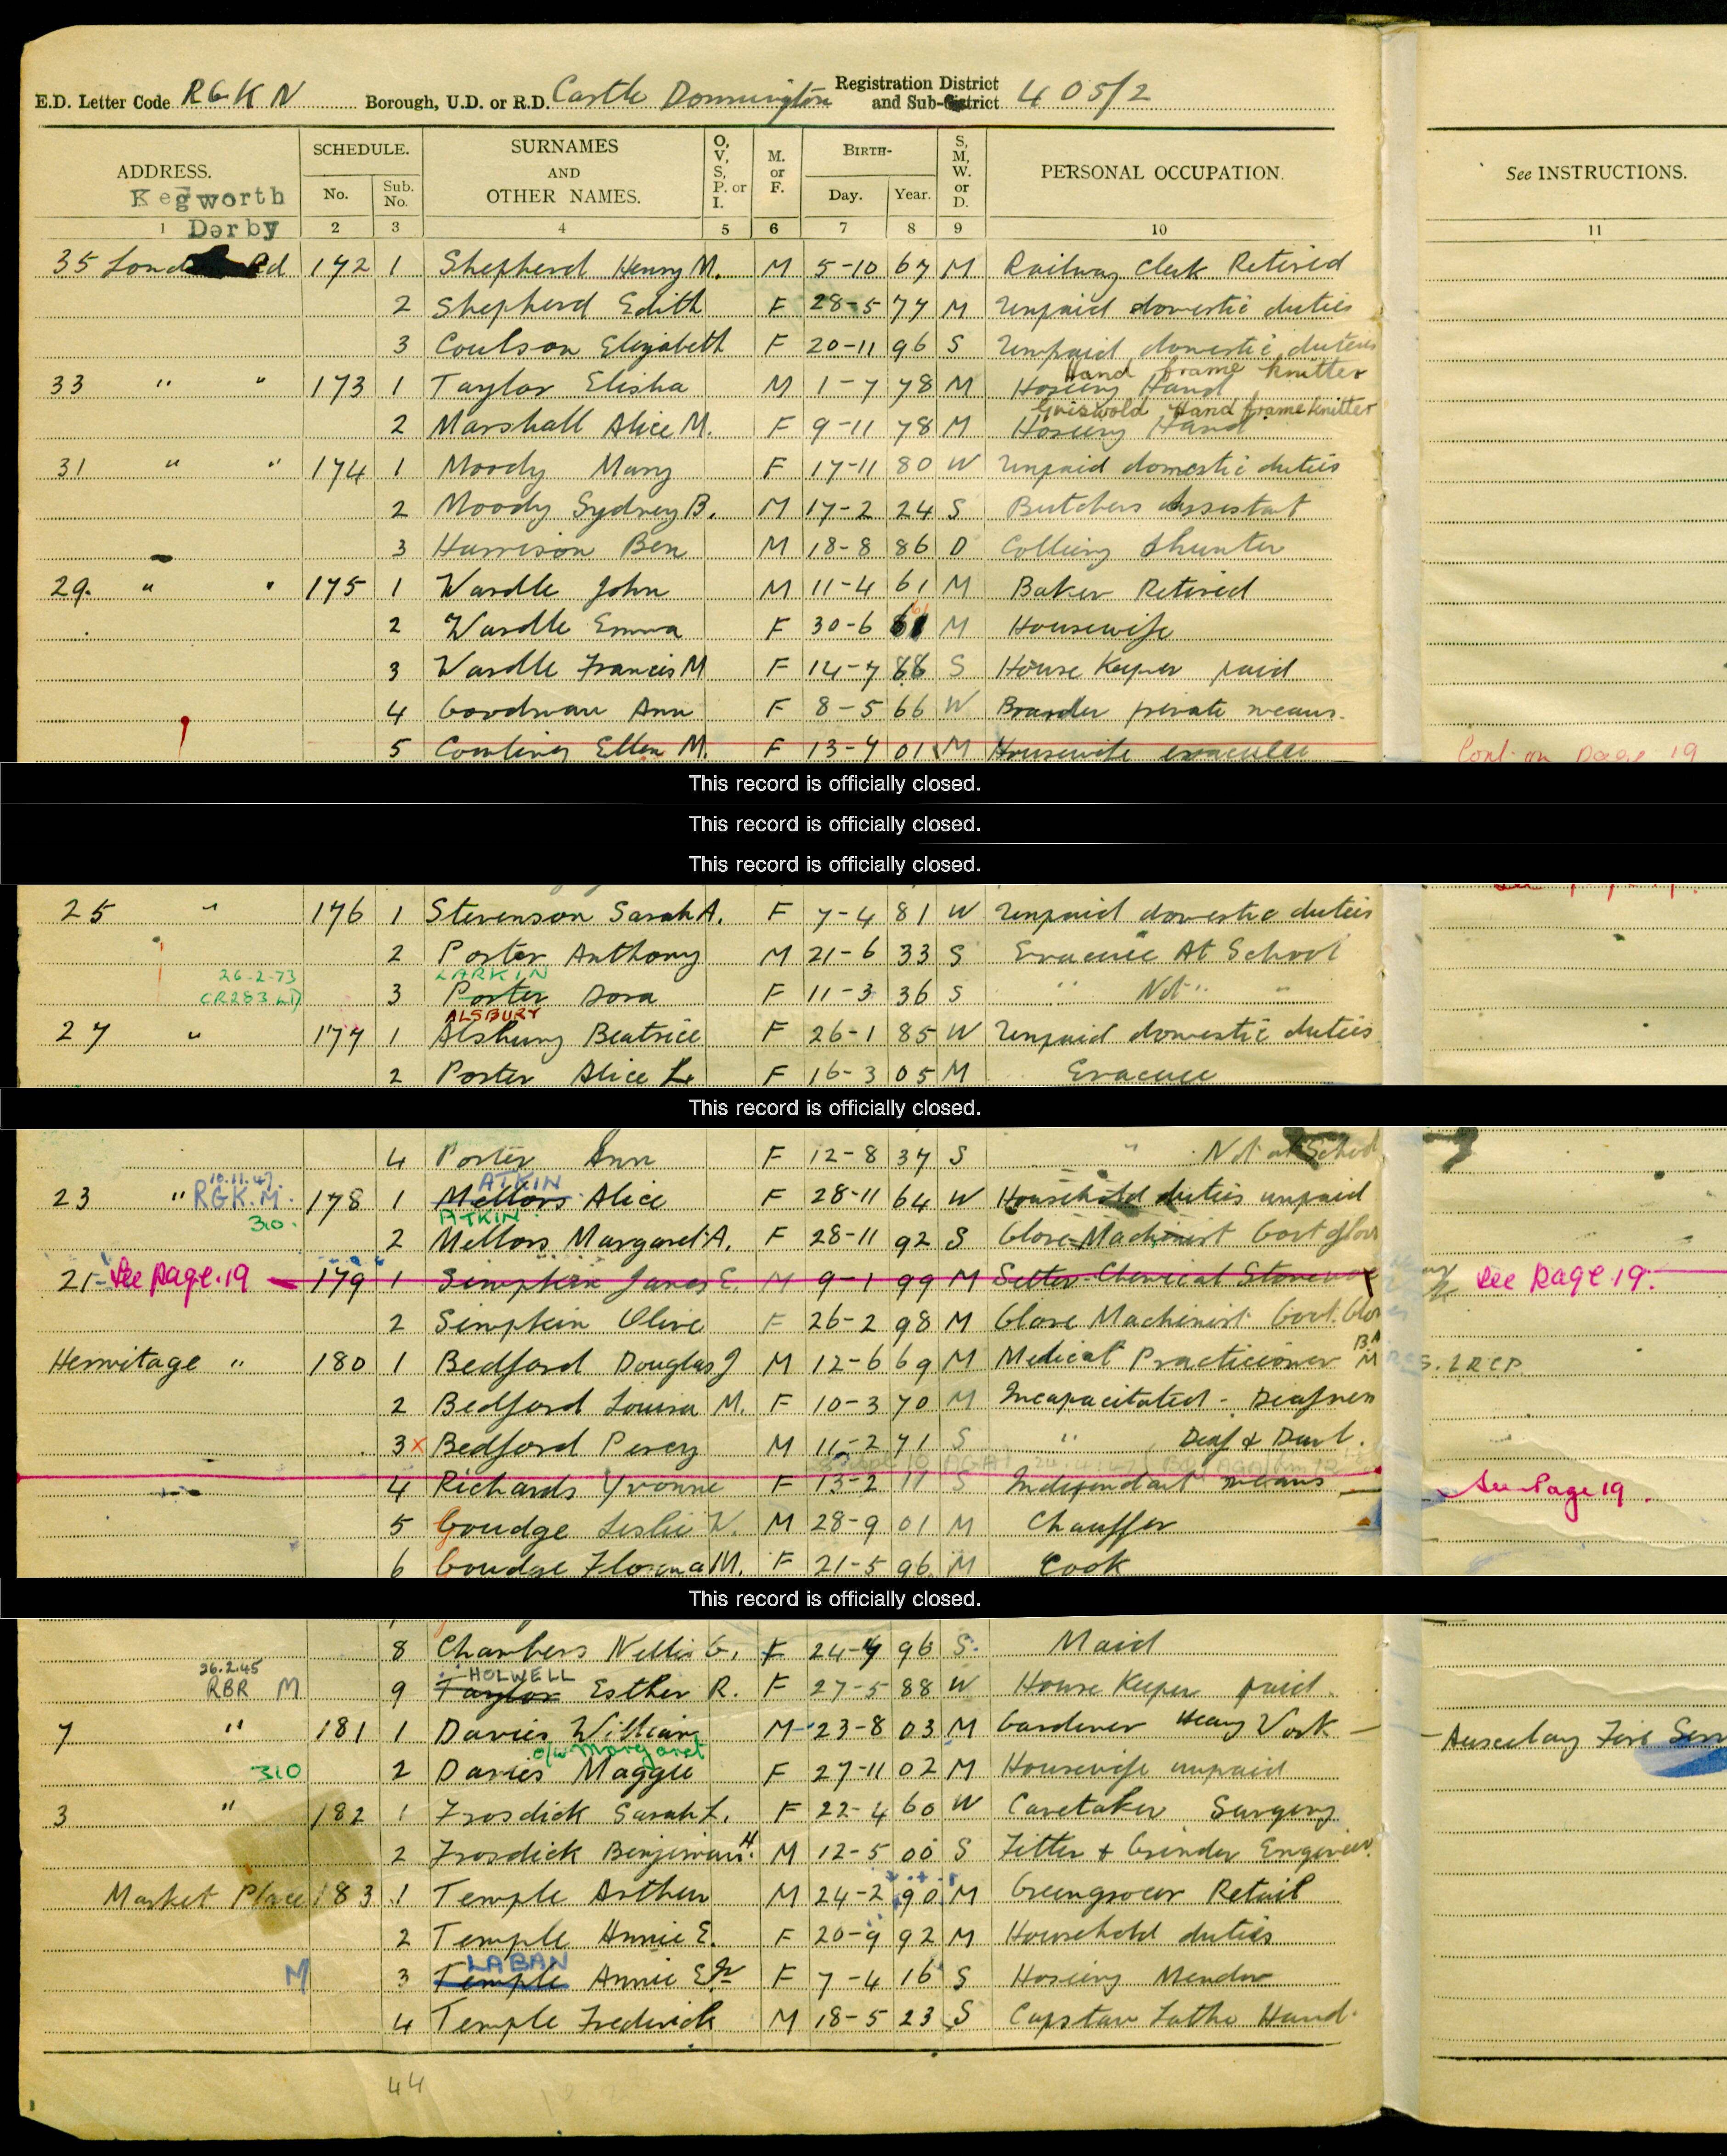 E.D. Letter Code RGKN Borough, U.D. or R.D. Castle Donnington Registration District and Sub-District 405/2
ADDRESS. SCHEDULE. SURNAMES AND OTHER NAMES. O, V, S, P. or I. M. or F. BIRTH- S, M, W. or D. PERSONAL OCCUPATION. See INSTRUCTIONS.
Kegworth Derby No. Sub. No. Day. Year.
1 2 3 4 5 6 7 8 9 10 11
35 Lond Rd 172 1 Shepherd Henry M. M 5-10 67 M Railway Clerk Retired
2 Shepherd Edith F 28-5 77 M Unpaid domestic duties
3 Coulson Elizabeth F 20-11 96 S Unpaid domestic duties
Hand frame knitter
33 " " 173 1 Taylor Elisha M 1-7 78 M Hosiery Hand
Griswold Hand frame knitter
2 Marshall Alice M. F 9-11 78 M Hosiery Hand
31 " " 174 1 Moody Mary F 17-11 80 W Unpaid domestic duties
2 Moody Sydney B. M 17-2 24 S Butchers Assistant
3 Harrison Ben M 18-8 86 D Colliery Shunter
29. " " 175 1 Wardle John M 11-4 61 M Baker Retired
2 Wardle Emma F 30-6 61 M Housewife
3 Wardle Francis M F 14-7 88 S House Keeper paid
4 Goodman Ann F 8-5 66 W Boarder private means.
5 Ellen M. F 13-4 01 M Housewife evacuee Cont. on Page 19
This record is officially closed.
This record is officially closed.
This record is officially closed.
25 " 176 1 Stevenson Sarah A. F 7-4 81 W Unpaid domestic duties
2 Porter Anthony M 21-6 33 S Evacuee At School
26-2-73 LARKIN
CR283 3 Porter Dora F 11-3 36 S " Not " "
ALSBURY
27 " 177 1 Alsbury Beatrice F 26-1 85 W Unpaid domestic duties
2 Porter Alice L F 16-3 05 M Evacuee
This record is officially closed.
4 Porter Ann F 12-8 37 S " Not at School
10.11.47. ATKIN
23 " RGK.M. 178 1 Mellors Alice F 28-11 64 W Household duties unpaid
310. ATKIN
2 Mellors Margaret A. F 28-11 92 S Glove Machinist Govt glov
21- See page.19 179 1 Simpkin James E. M 9-1 99 M Setter Chemical See page.19.
2 Simpkin Olive F 26-2 98 M Glove Machinist Govt. Glov
Hermitage " 180 1 Bedford Douglas J M 12-6 69 M Medical Practicioner BA M S. LRCP.
2 Bedford Louisa M. F 10-3 70 M Incapacitated - Deafness
3 x Bedford Percy M 11-2 71 S " Deaf & Dumb.
4 Richards Yvonne F 13-2 11 S Independant means See Page 19.
5 Goudge Leslie W. M 28-9 01 M Chauffer
6 Goudge M. F 21-5 96 M Cook
This record is officially closed.
8 Chambers Nellie G. F 24-4 96 S. Maid
26.2.45 HOLWELL
RBR M 9 Taylor Esther R. F 27-5 88 W House Keeper paid.
7 " 181 1 Davies William M 23-8 03 M Gardener Heavy Work Fire Serv
o/w Margaret
310 2 Davies Maggie F 27-11 02 M Housewife unpaid
3 " 182 1 Frosdick Sarah L. F 22-4 60 W Caretaker Surgery
2 Frosdick H. M 12-5 00 S Fitter & Grinder
Market Place 183 1 Temple Arthur M 24-2 90 M Greengrocer Retail
2 Temple Annie E. F 20-9 92 M Household duties
LABAN
M 3 Temple Annie E F 7-4 16 S Hosiery Mender
4 Temple Frederick M 18-5 23 S Capstan Lathe Hand.
44